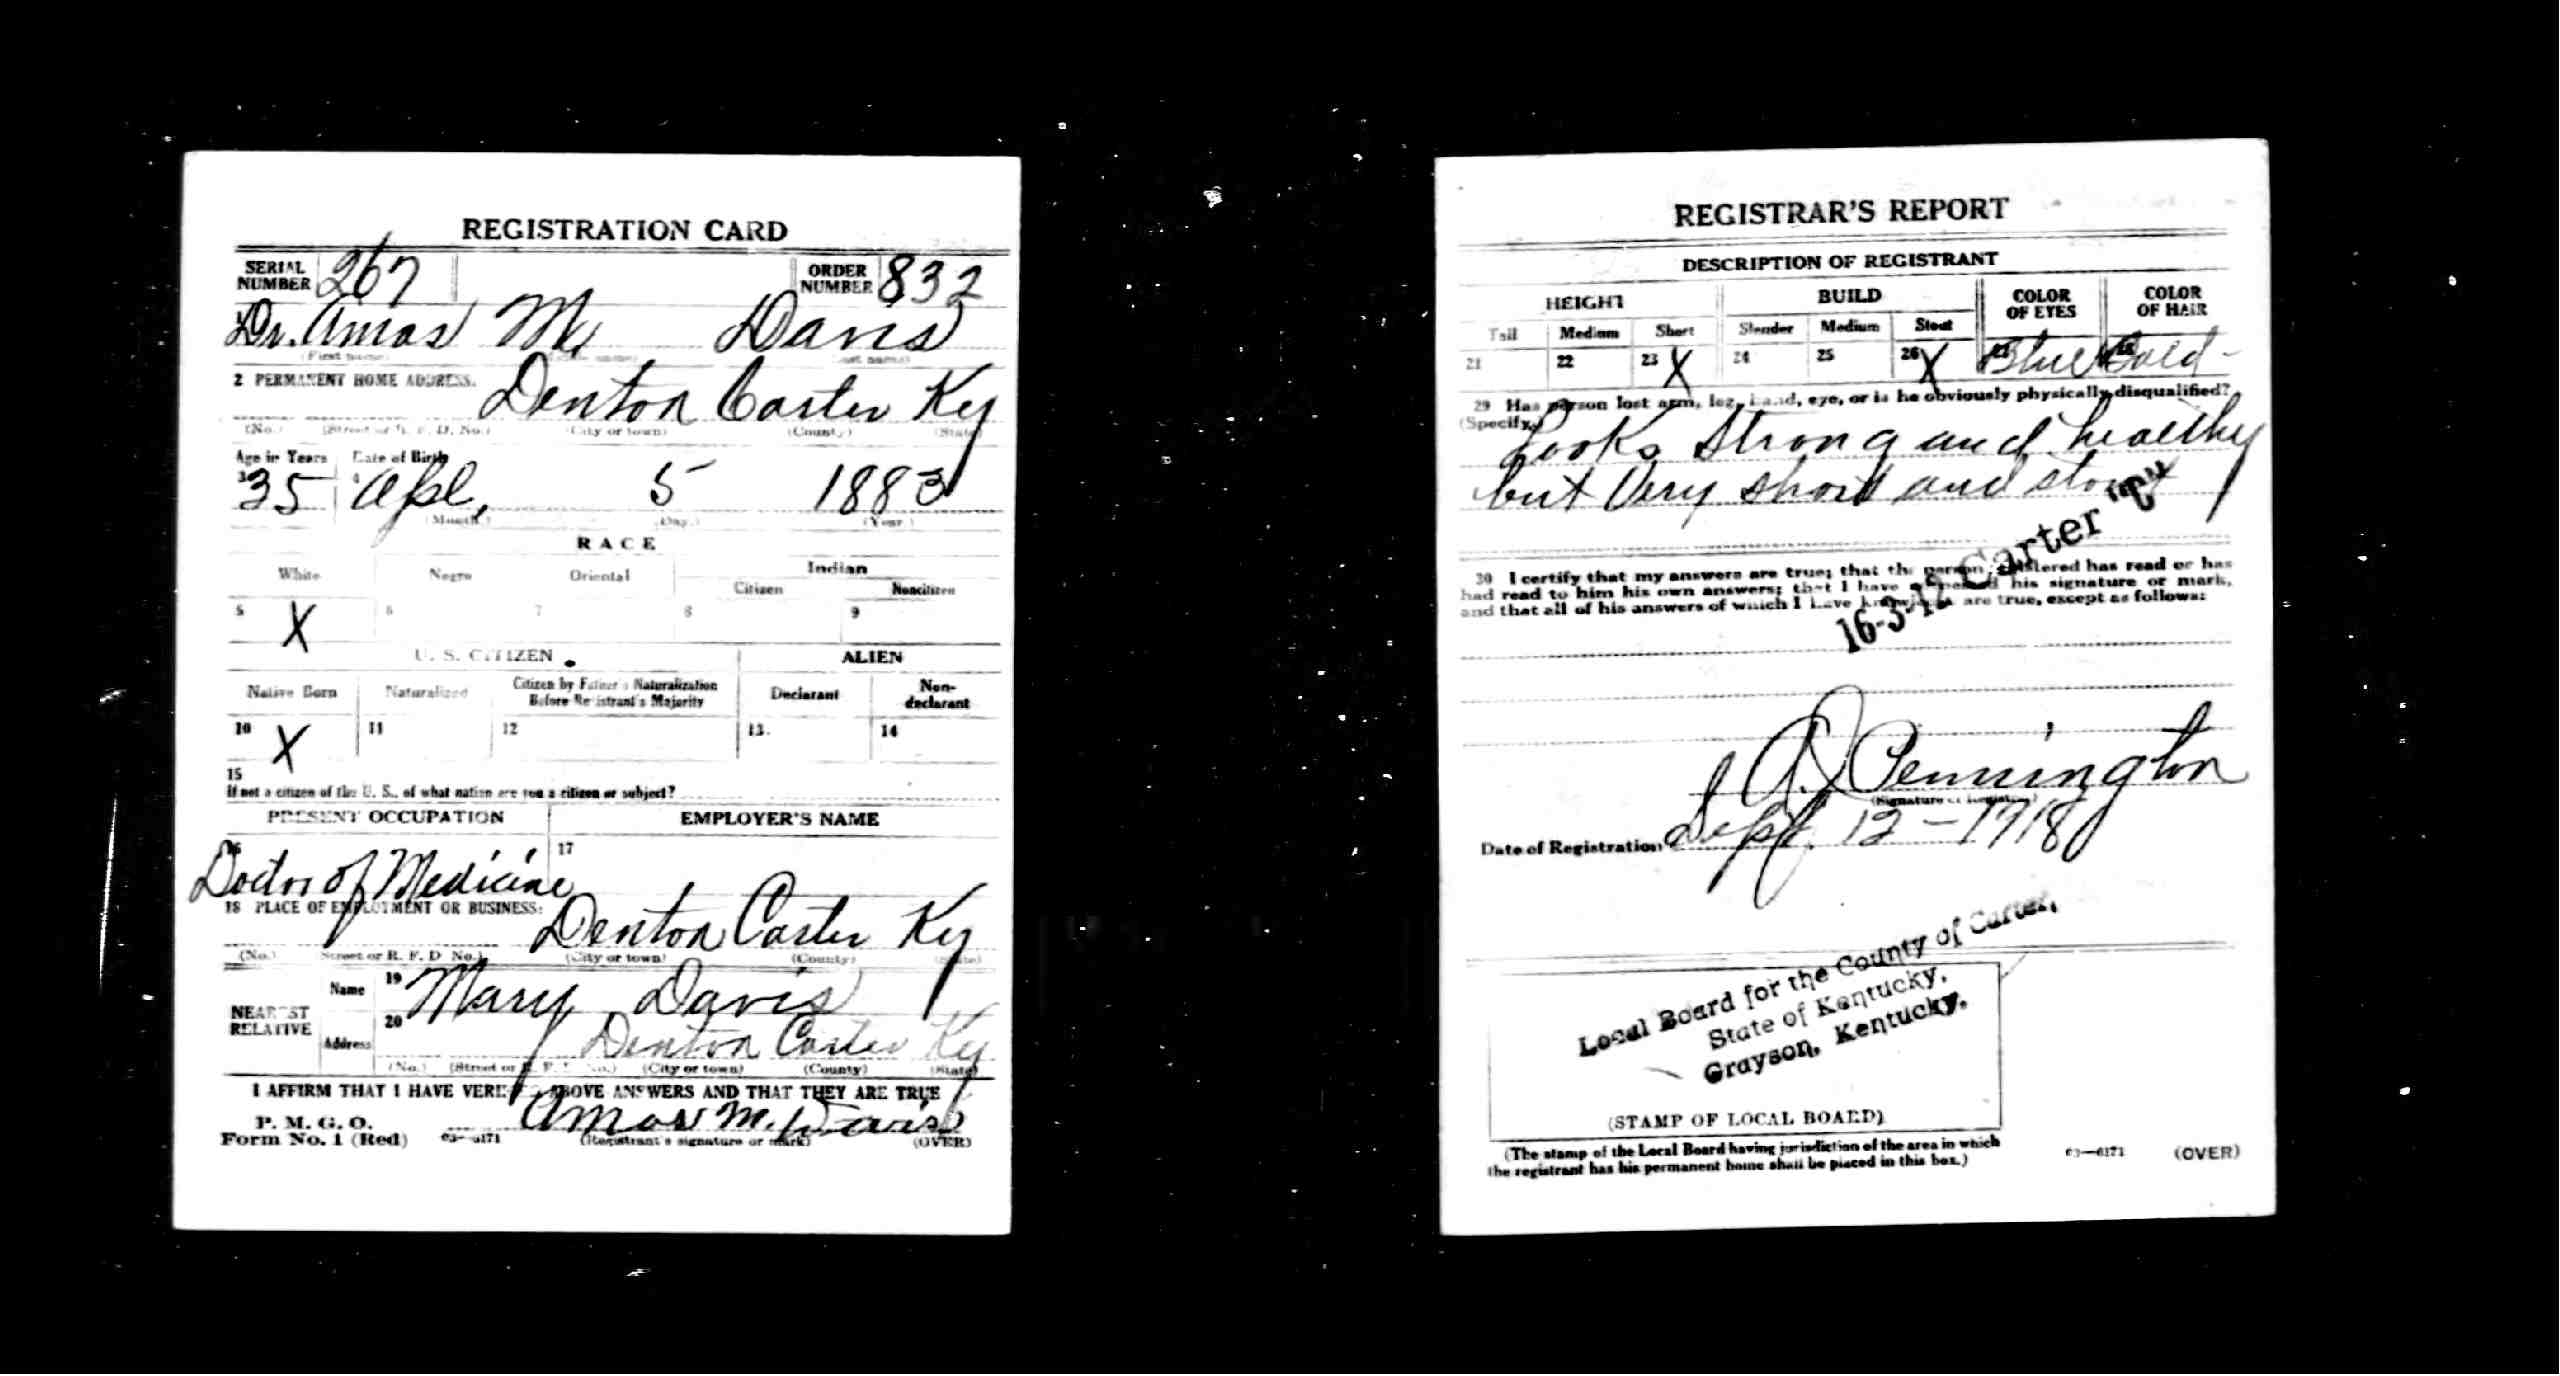 REGISTRATION CARD
SERIAL NUMBER 267 ORDER NUMBER 832
Dr. Amos M. Davis
(First name) (Middle name) (Last name)
2 PERMANENT HOME ADDRESS.
Denton Carter Ky
(No.) (Street or R. F. D. No.) (City or town) (County) (State)
Age in Years Date of Birth
3 35 4 Apl, 5 1883
(Month.) (Day.) (Year.)
RACE
White Negro Oriental Indian
Citizen Noncitizen
5 X 6 7 8 9
U. S. CITIZEN ALIEN
Native Born Naturalized Citizen by Father's Naturalization Before Registrant's Majority Declarant Non-declarant
10 X 11 12 13. 14
15
If not a citizen of the U. S., of what nation are you a citizen or subject?
PRESENT OCCUPATION EMPLOYER'S NAME
16 17
Doctor of Medicine
18 PLACE OF EMPLOYMENT OR BUSINESS:
Denton Carter Ky
(No.) (Street or R. F. D. No.) (City or town) (County) (State)
NEAREST RELATIVE
Name 19 Mary Davis
Address 20 Denton Carter Ky
(No.) (Street or R. F. D. No.) (City or town) (County) (State)
I AFFIRM THAT I HAVE VERIFIED ABOVE ANSWERS AND THAT THEY ARE TRUE
P. M. G. O.
Form No. 1 (Red) 03—6171
Amos M. Davis
(Registrant's signature or mark) (OVER)
REGISTRAR'S REPORT
DESCRIPTION OF REGISTRANT
HEIGHT BUILD COLOR OF EYES COLOR OF HAIR
Tall Medium Short Slender Medium Stout
21 22 23 X 24 25 26 X 27 Blue 28 Bald -
29 Has person lost arm, leg, hand, eye, or is he obviously physically disqualified?
(Specify.)
Looks Strong and healthy
but Very short and stout
16-3-12 Carter "C"
30 I certify that my answers are true; that the person registered has read or has
had read to him his own answers; that I have witnessed his signature or mark,
and that all of his answers of which I have knowledge are true, except as follows:
Pennington
(Signature of Registrar)
Date of Registration Sept. 12 - 1918
Local Board for the County of Carter,
State of Kentucky,
Grayson, Kentucky.
(STAMP OF LOCAL BOARD)
(The stamp of the Local Board having jurisdiction of the area in which
the registrant has his permanent home shall be placed in this box.)
03—6171 (OVER)